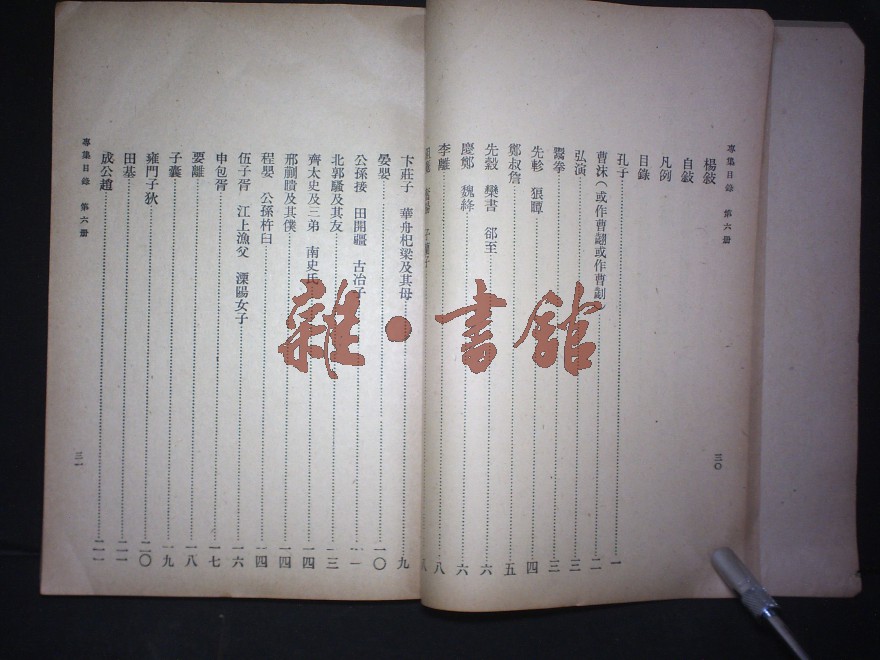 專集目錄 第六册
楊敍
自敍
凡例
目錄
孔子 一
曹沫(或作曹翽或作曹劌) 二
弘演 三
鬻拳 三
先軫 狼瞫 四
鄭叔詹 五
先縠 欒書 郤至 六
慶鄭 魏絳 六
李離 八
八
三〇
卞莊子 華舟杞梁及其母 九
晏嬰 一〇
公孫接 田開疆 古冶子 一一
北郭騷及其友 一三
齊太史及三弟 南史氏 一四
邢蒯聵及其僕 一四
程嬰 公孫杵臼 一四
伍子胥 江上漁父 溧陽女子 一六
申包胥 一七
要離 一八
子囊 一九
雍門子狄 二〇
田基 二一
成公趙 二一
專集目錄 第六册
三一
雜•書館